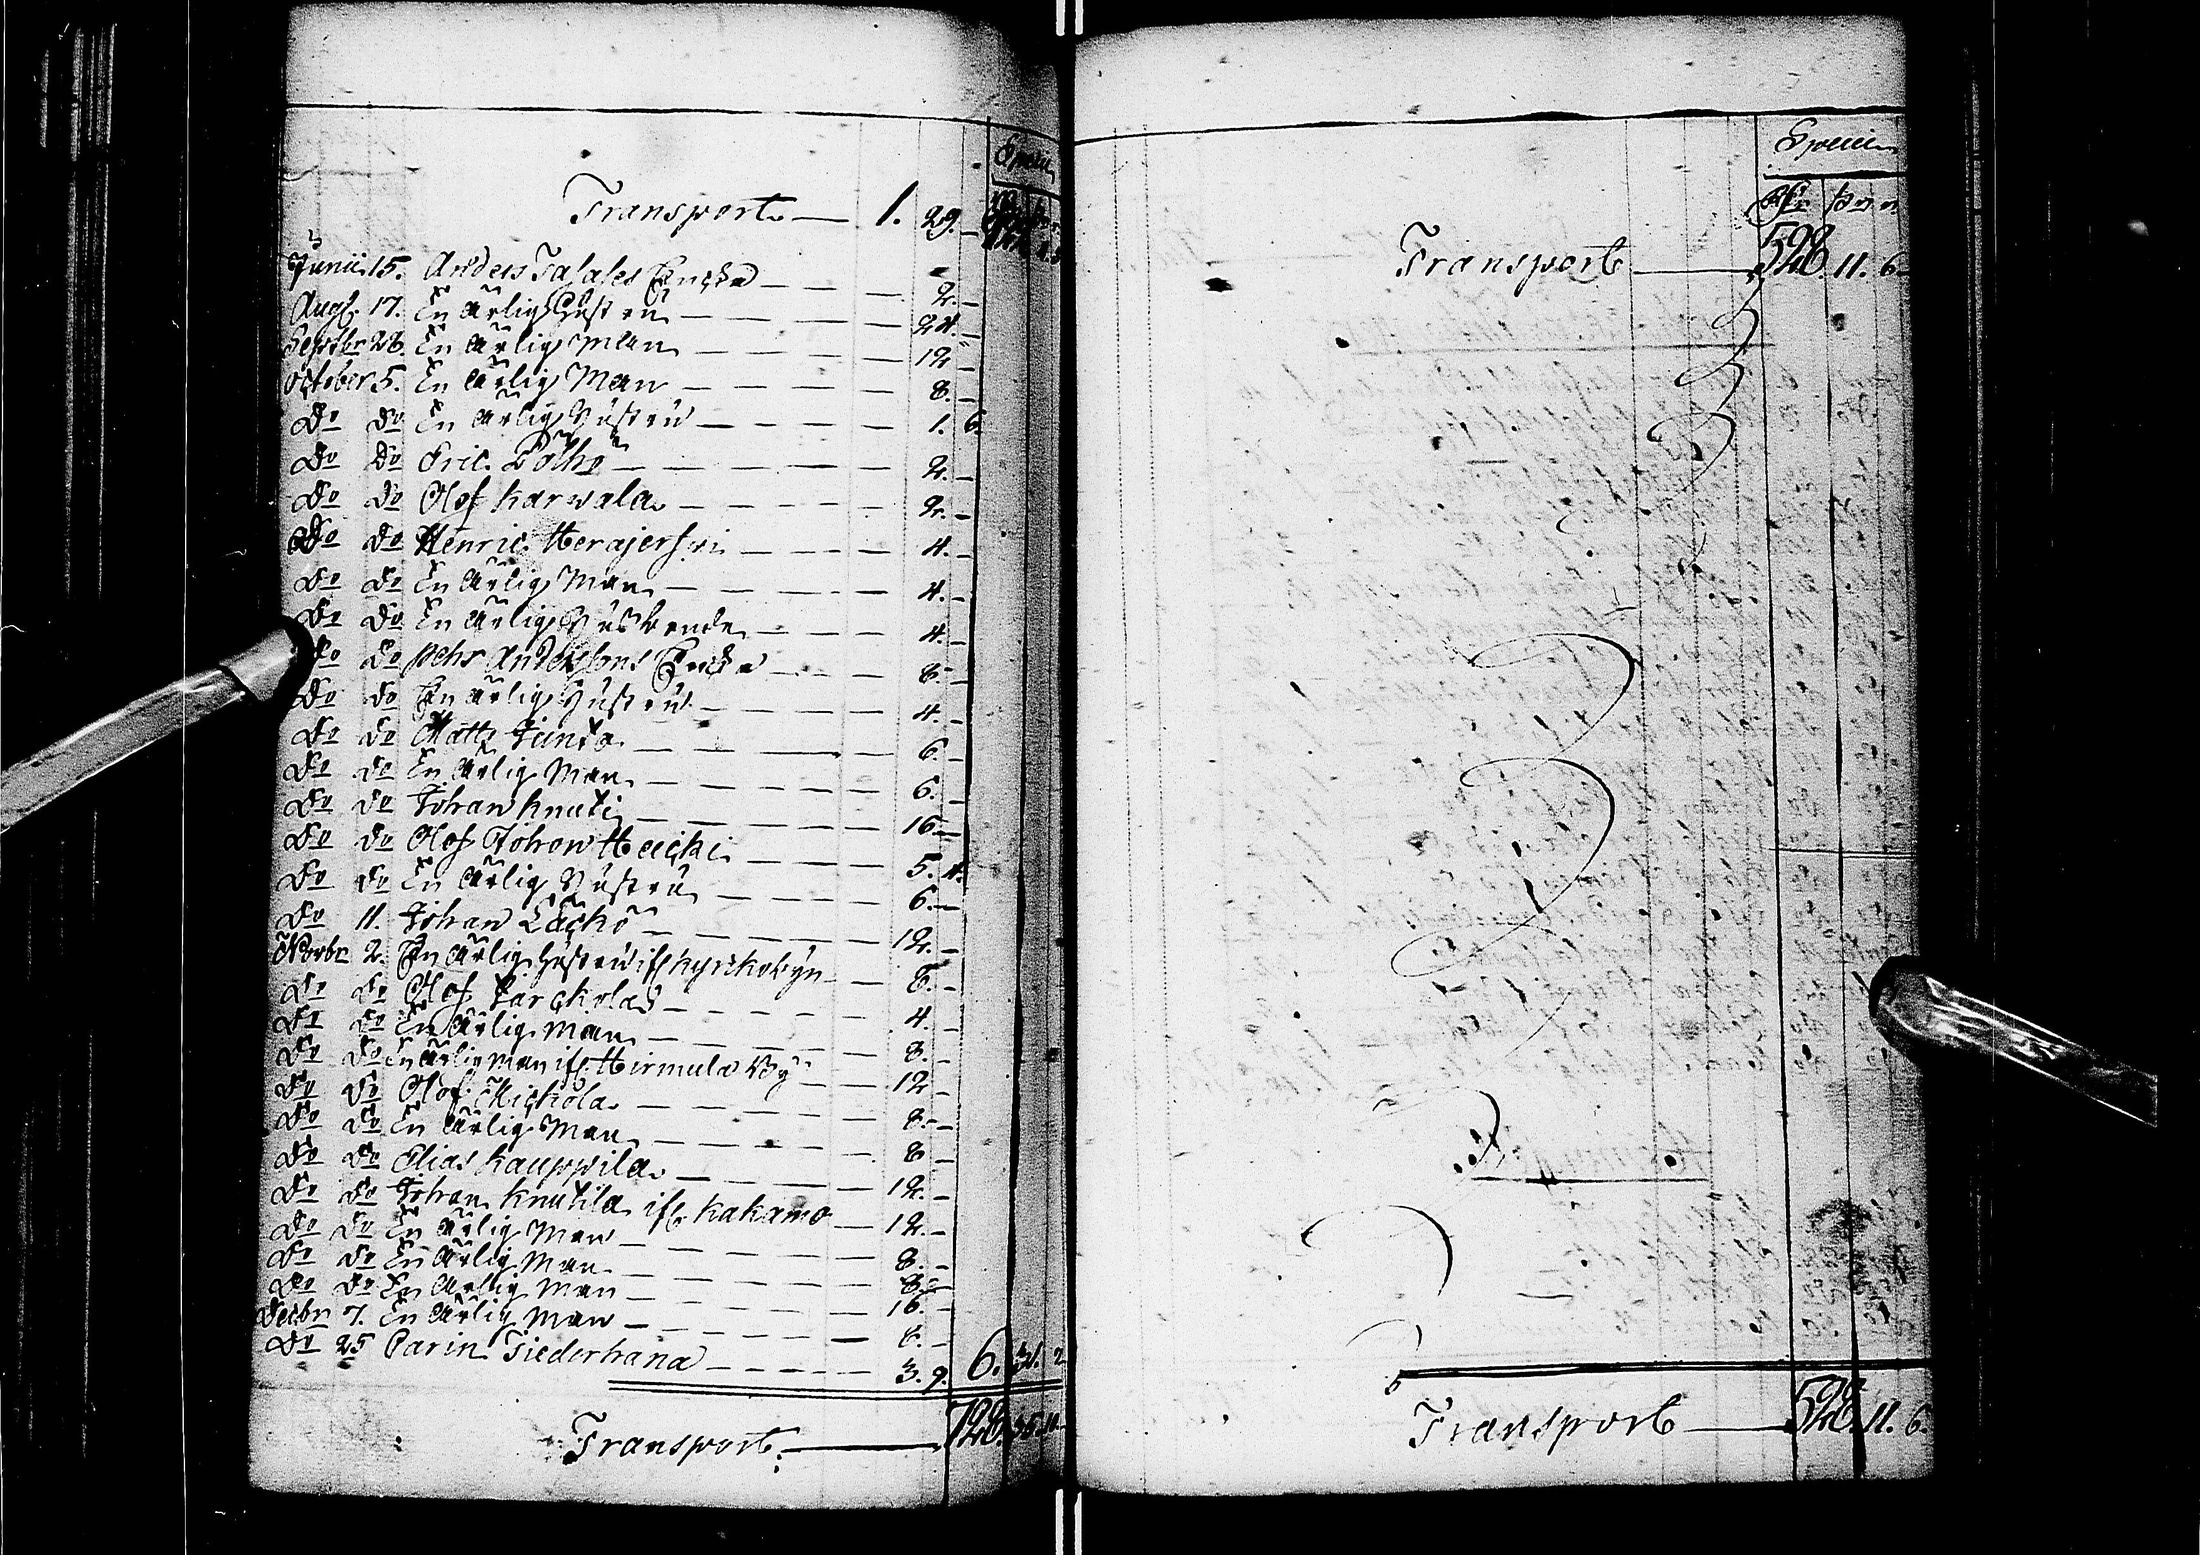 Specie
Transport — 1. 29. —
Junii 15. Anders Talales Encka — 2. —
Aug. 17. En ärlig Hustru — 24. —
Septbr 28. En ärlig Man — 12 —
October 5. En ärlig Man — 8. —
Do Do En ärlig Hustru — 1. 6.
Do Do Eric Pölhö — 2. —
Do Do Olof Karwala — 2. —
Do Do Henric Herajerfwi — 4. —
Do Do En ärlig Man — 4. —
Do Do En ärlig Husbonde — 4. —
Do Do Pehr Anderssons Encka — 8. —
Do Do En ärlig Hustru — 4. —
Do Do Matts Junto — 6. —
Do Do En ärlig Man — 6. —
Do Do Johan Knuti — 16. —
Do Do Olof Johan Heicki — 5. 4.
Do Do En ärlig Hustru — 6. —
Do 11. Johan Läckö — 12. —
Novbr 2. En ärlig Hustru ifr Kyrkobyn — 8. —
Do Do Olof Parckola — 4. —
Do Do En ärlig Man — 8. —
Do Do En ärlig Man ifr Hirmula By — 12 —
Do Do Olof Mickola — 8. —
Do Do En ärlig Man — 8 —
Do Do Elias Kauppila — 12. —
Do Do Johan Knutila ifr Kakamo — 12. —
Do Do En ärlig Man — 8. —
Do Do En ärlig Man — 8. —
Do Do En ärlig Man — 16. —
Decbr 7. En ärlig Man — 6. —
Do 25 Parin Tiederhana — 3. 9. 6. 31. 2
Transport —
Specie
Transport — 528. 11. 6.
Transport — 528. 11. 6.